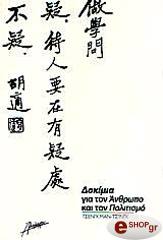 做學問
疑，待人要在有疑處
不疑。胡適
Δοκίμια
για τον Άνθρωπο
και τον Πολιτισμό
ΤΣΕΝΓΚ ΜΑΝ-ΤΣΙΝΓΚ
e-shop.gr